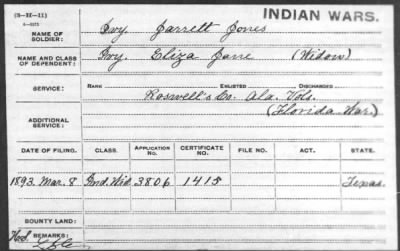 (3-II-11)
INDIAN WARS.
NAME OF SOLDIER: Ivy, Jarrett Jones
NAME AND CLASS OF DEPENDENT: Ivy, Eliza Jane (Widow)
SERVICE: RANK ENLISTED DISCHARGED
Roswell's Co. Ala. Vols.
(Florida War.)
ADDITIONAL SERVICE:
DATE OF FILING. CLASS. APPLICATION NO. CERTIFICATE NO. FILE NO. ACT. STATE.
1893 Mar. 8 Ind. Wid. 3806 1415 Texas.
BOUNTY LAND:
REMARKS: